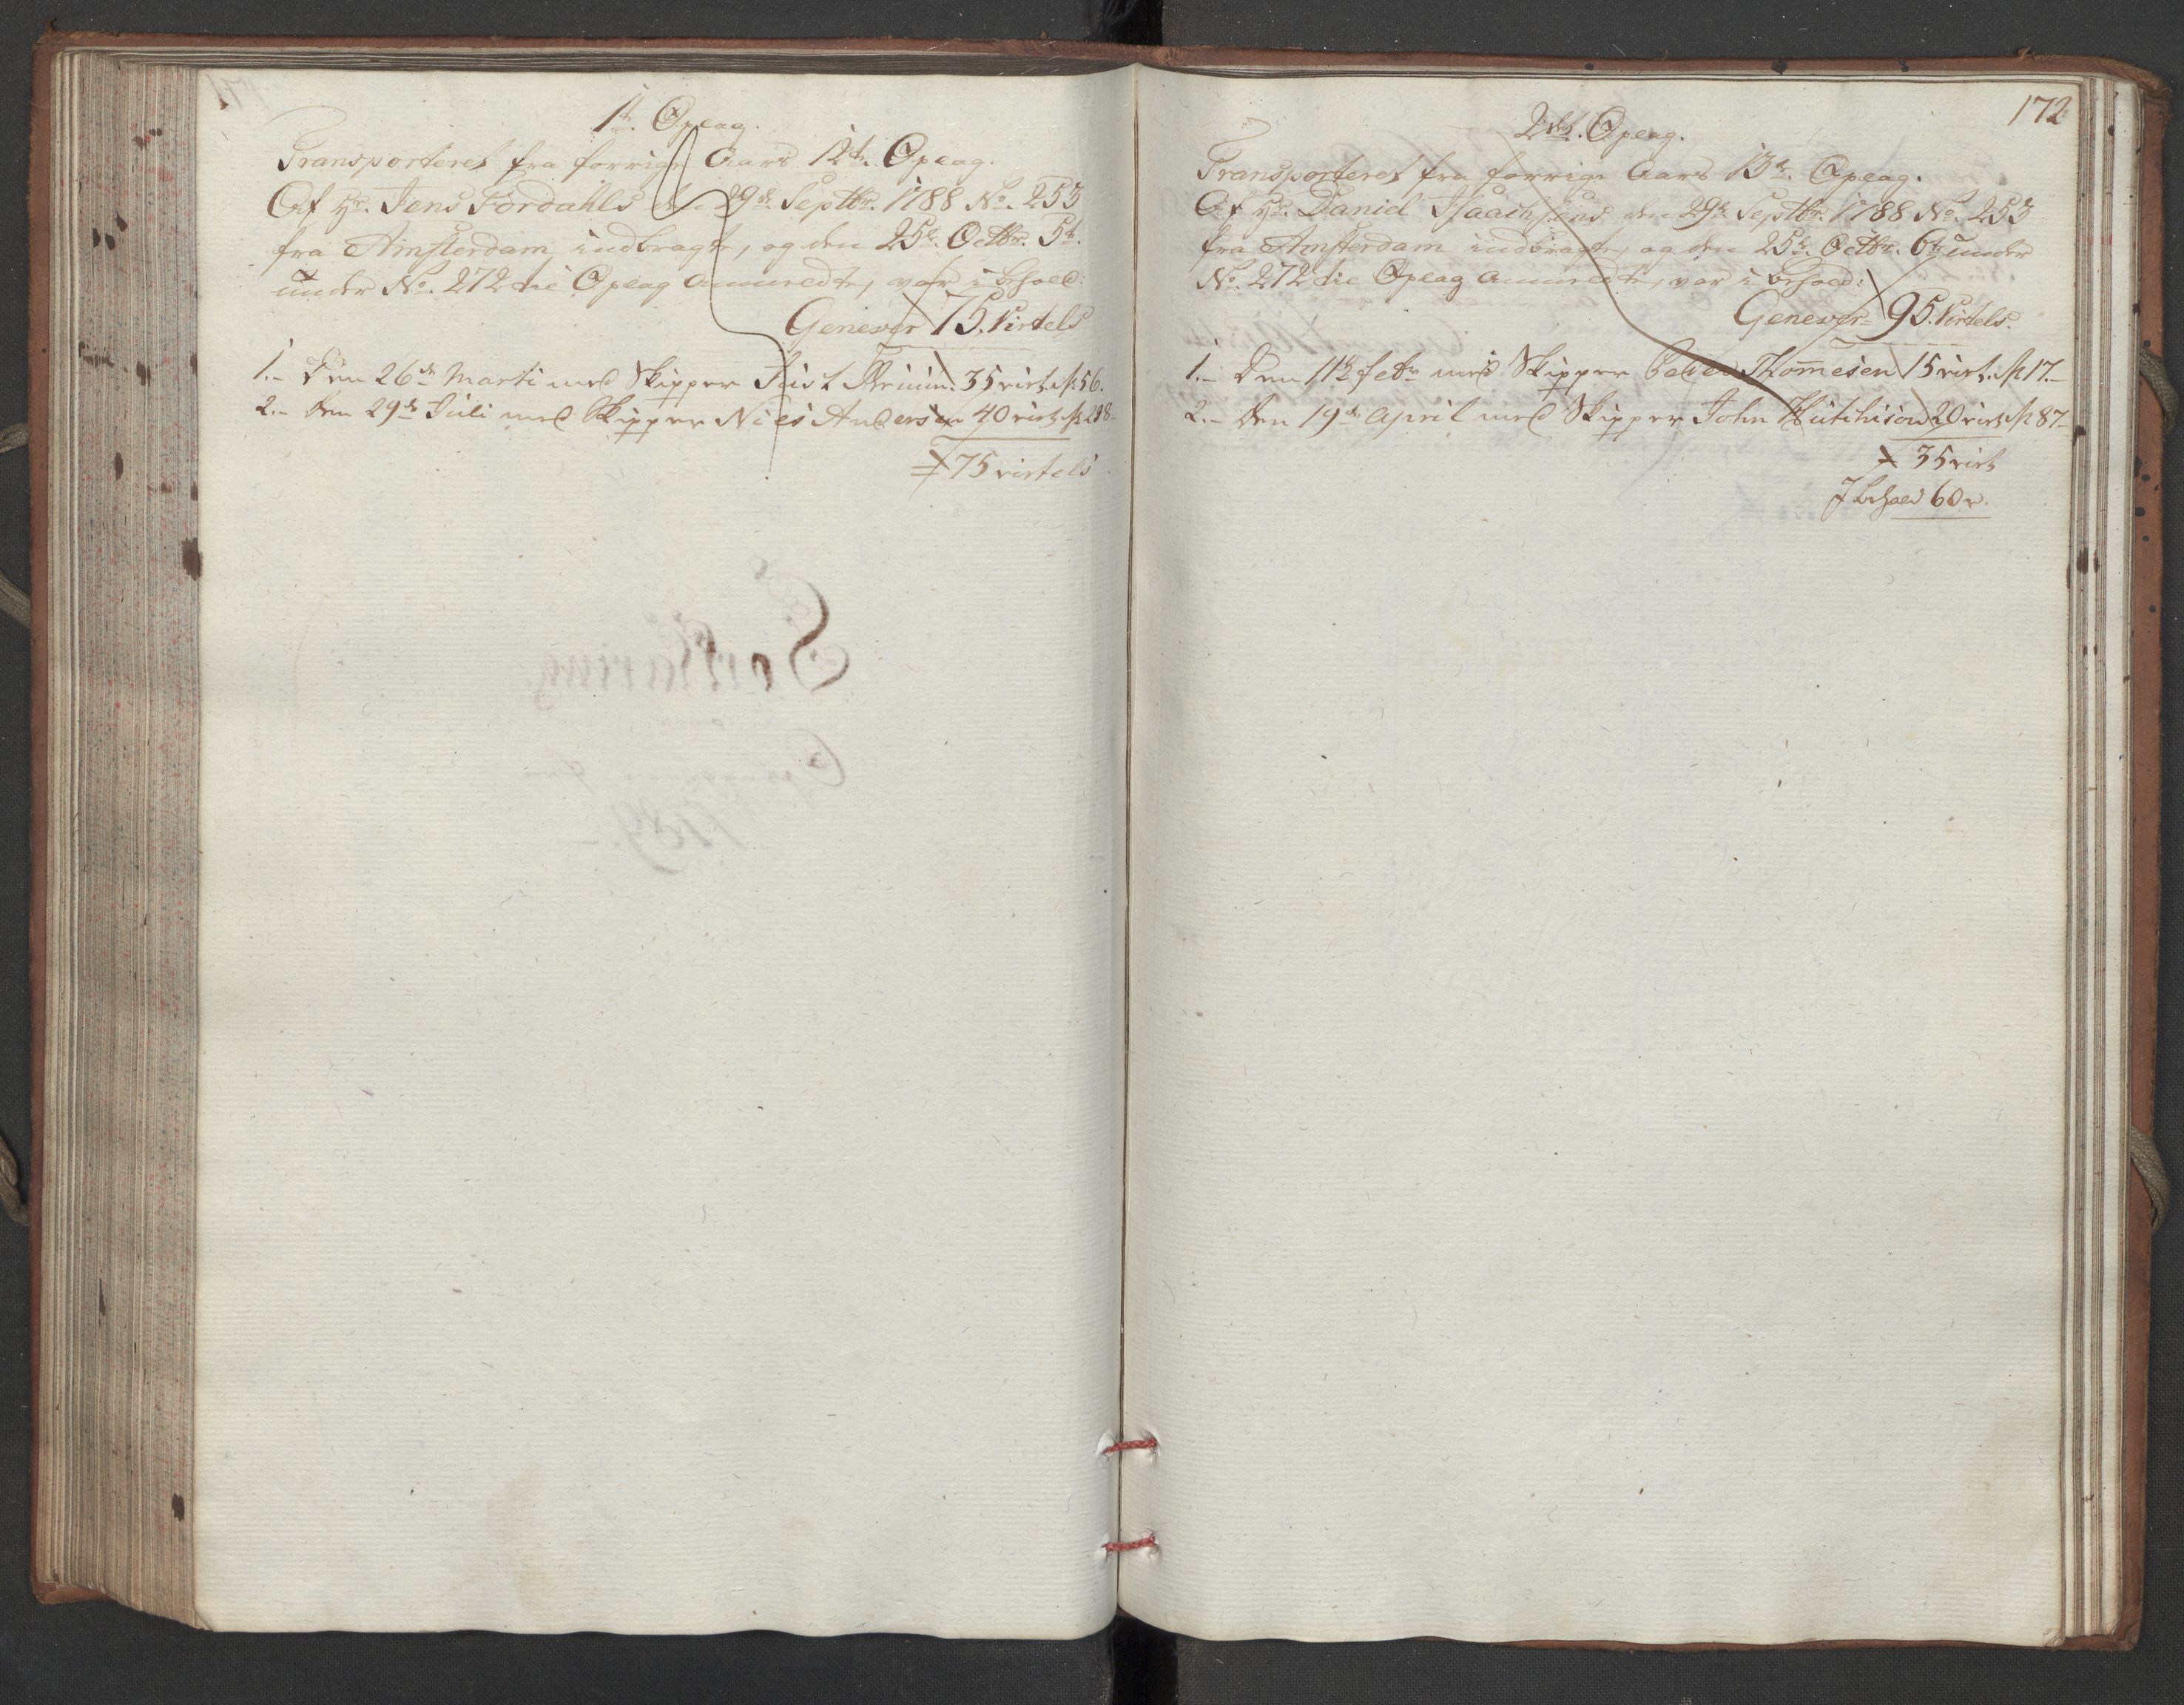 1te. Oplag.
Transporteret fra forrige Aars 12te. Oplag.
Af Hr. Jens Fordahls den 29de Septbr. 1788 No. 253
fra Amsterdam indbragte, og den 25de. Octbr. 5te.
under No. 272 tie Oplag anmeldte, var i behold:
Genever 75. Virtels
1.- Den 26de Marti med Skipper Just 35 virt. No 56.
2.- Den 29de Juli med Skipper Niels Andersen 40 virt. No 218
75 virtels
172
2det. Oplag.
Transporteret fra forrige Aars 13de. Oplag.
Af Hr. Daniel Isaachsens den 29de Septbr. 1788 No. 253
fra Amsterdam indbragte, og den 25de. Octbr. 6te under
No. 272 tie Oplag anmeldte, var i behold:
Genever 95. Virtels.
1.- Den 11te febr med Skipper Thomesen 15 virt. No 17.-
2.- Den 19de April med Skipper John Hutchison 20 virt. No 87-
35 virt
I behold 60 v.